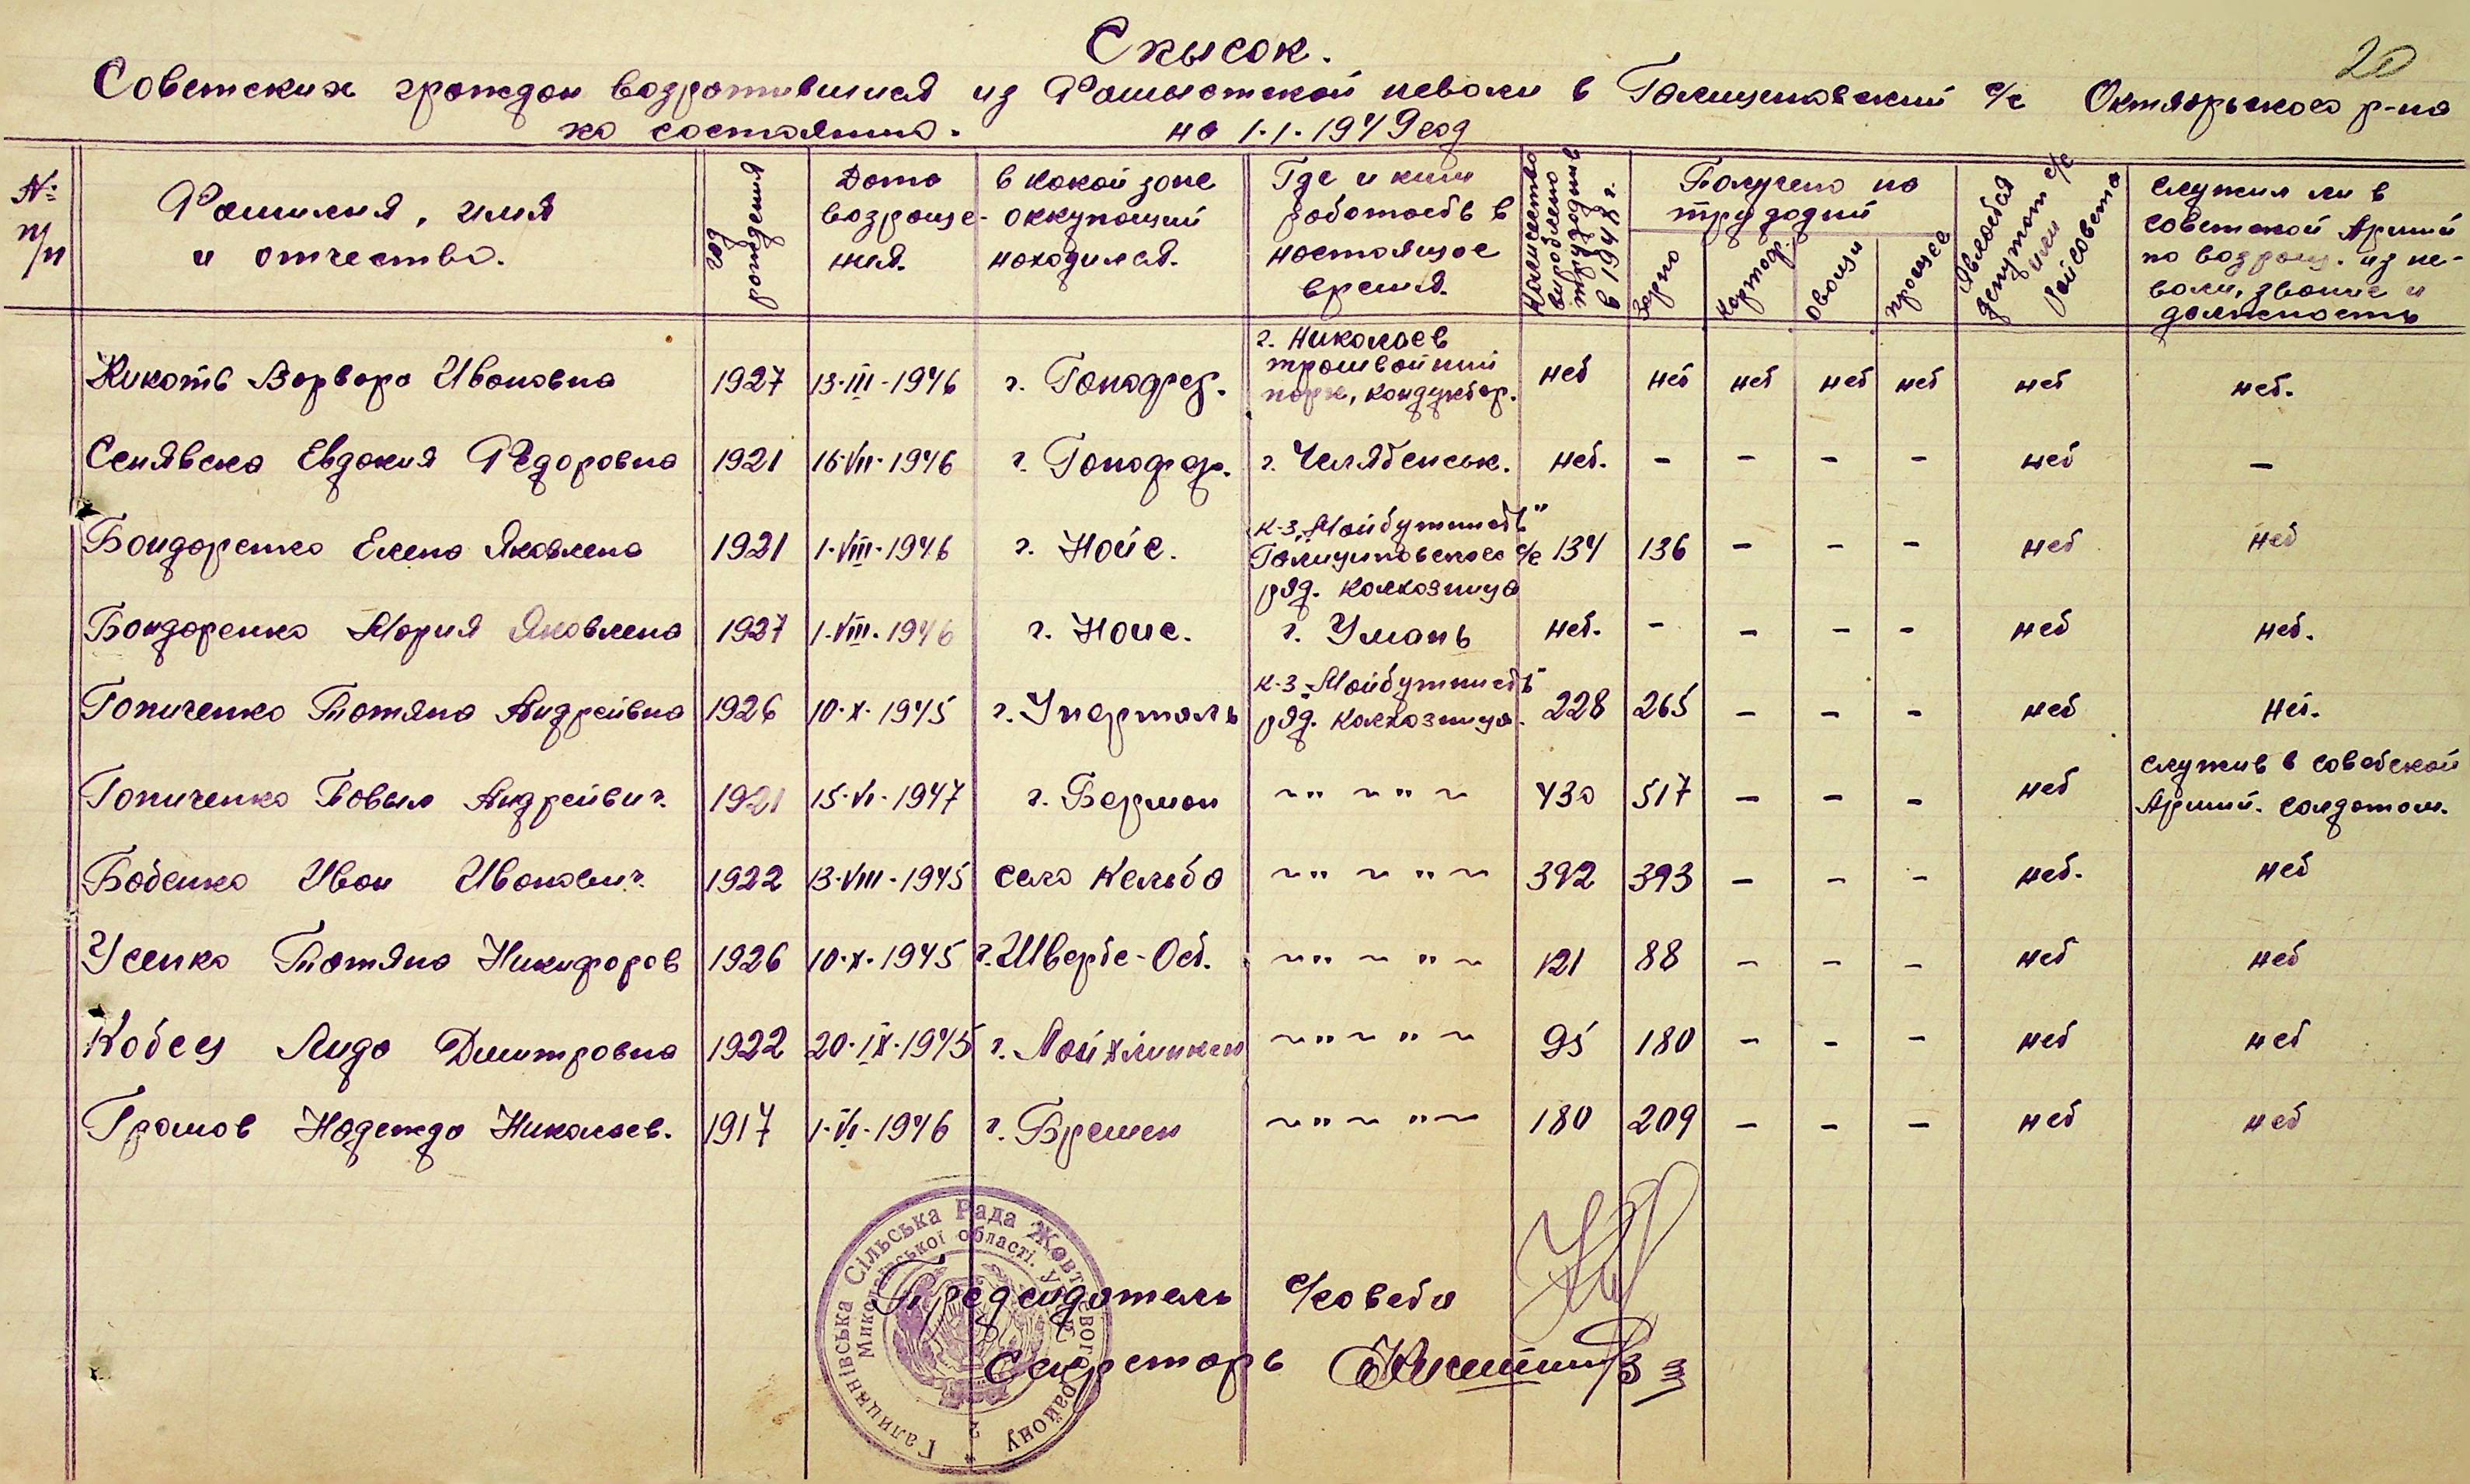 Список.
20
Советских граждан возратившися из Фашыстской неволи в Голицыновский с/с Октябрьского р-на
по состоянию. на 1.1.1949 год
№ п/п
Фамилия, имя
и отчество.
год рождения
Дата
возраще-
ния.
в какой зоне
оккупацый
находился.
Где и кым
работаеть в
настоящое
время.
Количество
виработено
трудодней
в 1948 г.
Получено на
трудодний
Зерно
Картоф.
Овощи
прощее
Являеться
депутат с/с
или
Райсовета
Служил ли в
Советской Армий
по возращ. из не-
воли, звание и
должность
Жикоть Варвара Ивановна 1927 13.III-1946 г. Гонофер. г. Николаев
трамвойний
парк, кондуктор. нет нет нет нет нет нет нет.
Сенявска Евдокия Фёдоровна 1921 16.VII.1946 г. Гонофер. г. Челябенськ. нет. - - - - нет -
Бондаренко Елена Яковлена 1921 1.VIII.1946 г. Нойс. к-з „Майбутнисть"
Голицыновского с/с
ряд. колхозница 134 136 - - - нет нет
Бондаренко Мария Яковлена 1927 1.VIII.1946 г. Ноис. г. Умань нет. - - - - нет нет.
Гопиченко Татяна Андрейвна 1926 10.X.1945 г. Унерталь к-з „Майбутнисть"
ряд. колхозница. 228 265 - - - нет нет.
Гопиченко Павыл Андрейвич. 1921 15.VI.1947 г. Берман ~ " ~ " ~ 430 517 - - - нет служив в советской
Армий. солдатом.
Бабенко Иван Иванович. 1922 13.VIII.1945 село Кельба ~ " ~ " ~ 392 393 - - - нет. нет
Усенко Татяна Никифоров 1926 10.X.1945 г. Шверте-Ост. ~ " ~ " ~ 121 88 - - - нет нет
Кобец Лида Дмитровна 1922 20.IX.1945 г. Лойхлинкен ~ " ~ " ~ 95 180 - - - нет нет
Громов Надежда Николаев. 1917 1.VI.1946 г. Бремен ~ " ~ " ~ 180 209 - - - нет нет
Галицинівська Сільська Рада Жовтневого району
Миколаївської області. УРСР
Председатель с/совета
Секретарь